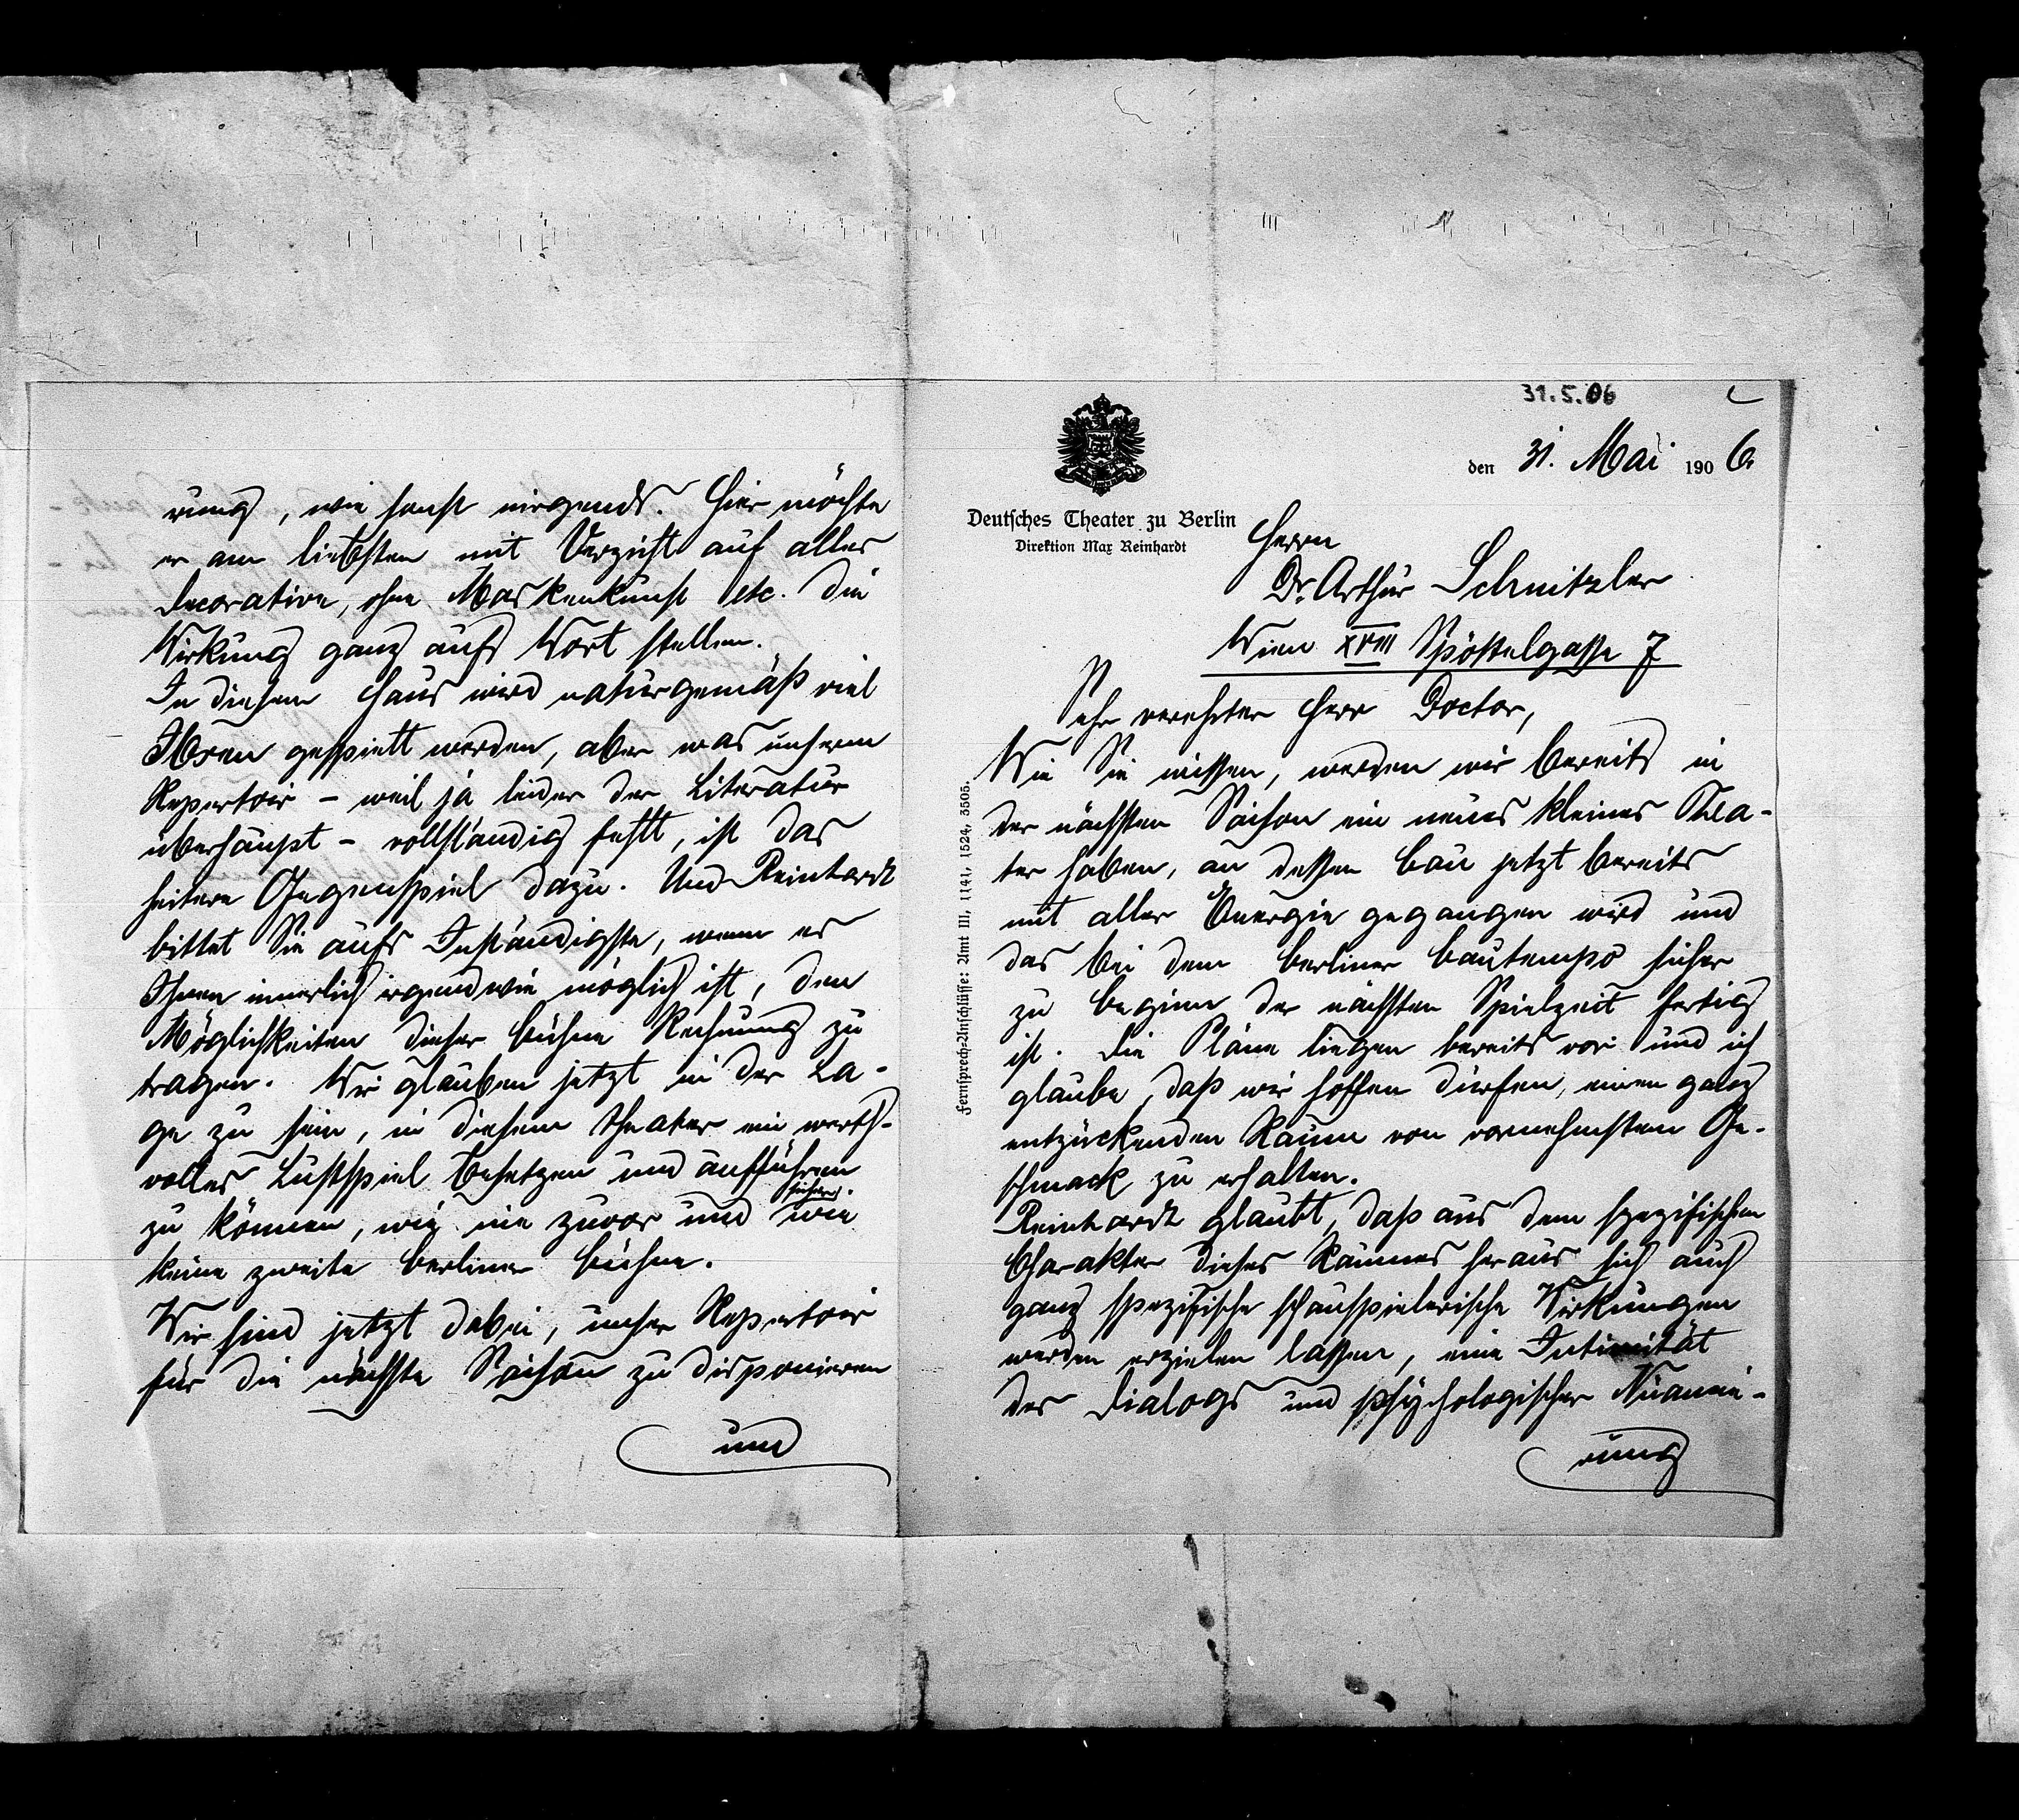 31.5.06
den 31. Mai 1906.
Deutsches Theater zu Berlin
Direktion Max Reinhardt
Fernsprech-Anschlüsse: Amt III, 1141, 1524, 3505.
Herrn
Dr. Arthur Schnitzler
Wien XVIII Spöttelgasse 7
Sehr verehrter Herr Doctor,
Wie Sie wissen, werden wir bereits in
der nächsten Saison ein neues kleines Thea-
ter haben, an dessen Bau jetzt bereits
mit aller Energie gegangen wird und
das bei dem Berliner Bautempo sicher
zu Beginn der nächsten Spielzeit fertig
ist. Die Pläne liegen bereits vor und ich
glaube, daß wir hoffen dürfen, einen ganz
entzückenden Raum von vornehmstem Ge-
schmack zu erhalten.
Reinhardt glaubt, daß aus dem spezifischen
Charakter dieses Raumes heraus sich auch
ganz spezifische schauspielerische Wirkungen
werden erzielen lassen, eine Intimität
des Dialogs und psychologischer Nuancie-
rung
rung, wie sonst nirgends. Hier möchte
er am liebsten mit Verzicht auf alles
Decorative, ohne Maskenkunst etc. die
Wirkung ganz aufs Wort stellen.
In diesem Haus wird naturgemäß viel
Ibsen gespielt werden, aber was unserm
Repertoir – weil ja leider der Literatur
überhaupt – vollständig fehlt, ist das
heitere Gegenspiel dazu. Und Reinhardt
bittet Sie aufs Inständigste, wenn es
Ihnen innerlich irgendwie möglich ist, den
Möglichkeiten dieser Bühne Rechnung zu
tragen. Wir glauben jetzt in der La-
ge zu sein, in diesem Theater ein werth-
volles Lustspiel besetzen und aufführen
zu können, wie nie zuvor und sicher wie
keine zweite Berliner Bühne.
Wir sind jetzt dabei, unser Repertoir
für die nächste Saison zu disponieren
und